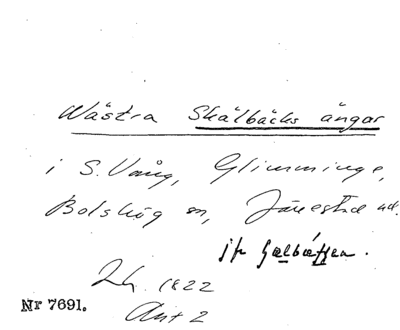 Wästra Skälbäcks ängar
i S. Vång, Glimminge,
Bolshög sn, Järrestad hd.
jfr Gælbæffen.
Lh. 1822
Akt 2
Nr 7691.